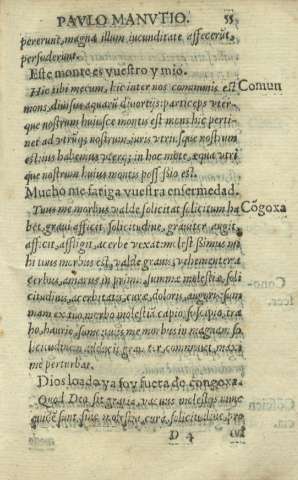 PAVLO MANVTIO. 55
pererunt, magna illum iucunditate affecerūt,
persuderunt.
Este monte es vuestro y mio.
Hic tibi mecum, hic inter nos communis est Comun
mons, diuisus aquarū diuortijs: particeps vter-
que nostrum huiusce montis est mons hic perti-
net ad vtrūqs nostrum, iuris vtriusque nostrum
est: ius habemus vterq; in hoc mōte, æqua vtri
que nostrum huius montis possessio est.
Mucho me fatiga vuestra enfermedad.
Tuus me morbus valde solicitat solicitum ha Cōgoxa
bet, graui afficit solicitudine, grauiter angit,
afficit, affligit, acerbe vexat: molestissimus mi
hi tuus morbus est, valde grauis, vehementer a
cerbus, amarus in primis: summæ molestiæ, soli
citudinis, acerbitatis, curæ, doloris, angoris: sum
mam ex tuo morbo molestiā capio, suscipio, tra
ho, haurio, sumo: tuus me morbus in magnam so
licitudinem adducit, grauiter commouet, maxi
me perturbat.
Dios loado ya soy fuera de congoxa.
Quod Deo sit gratia, vacuus molestijs nunc
quidē sum, sine molestia, cura, solicitudine, pro
D 4 cul